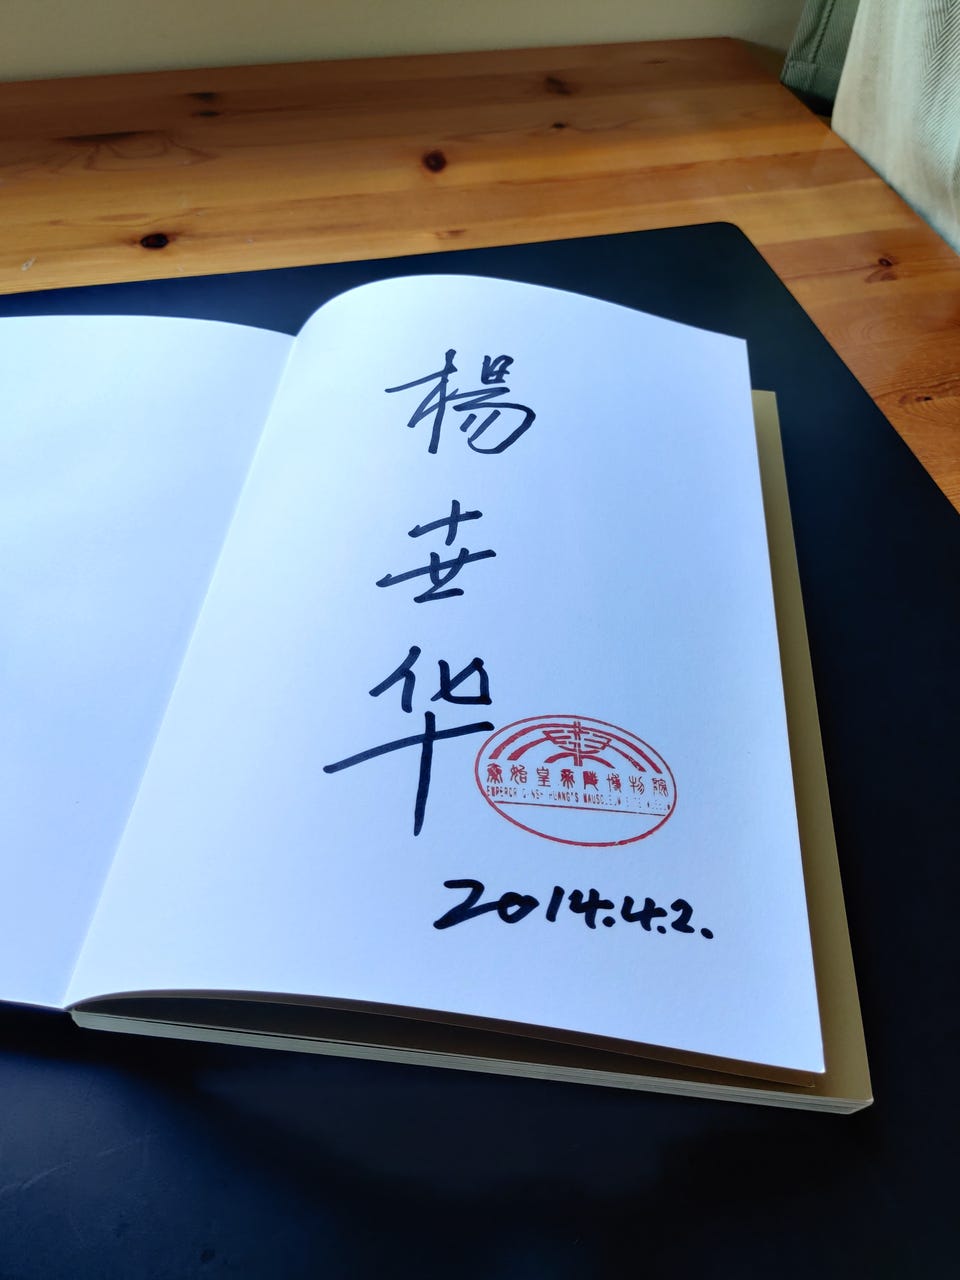 楊
华
秦始皇帝陵博物院
EMPEROR QINSHIHUANG'S MAUSOLEUM SITE MUSEUM
2014.4.2.